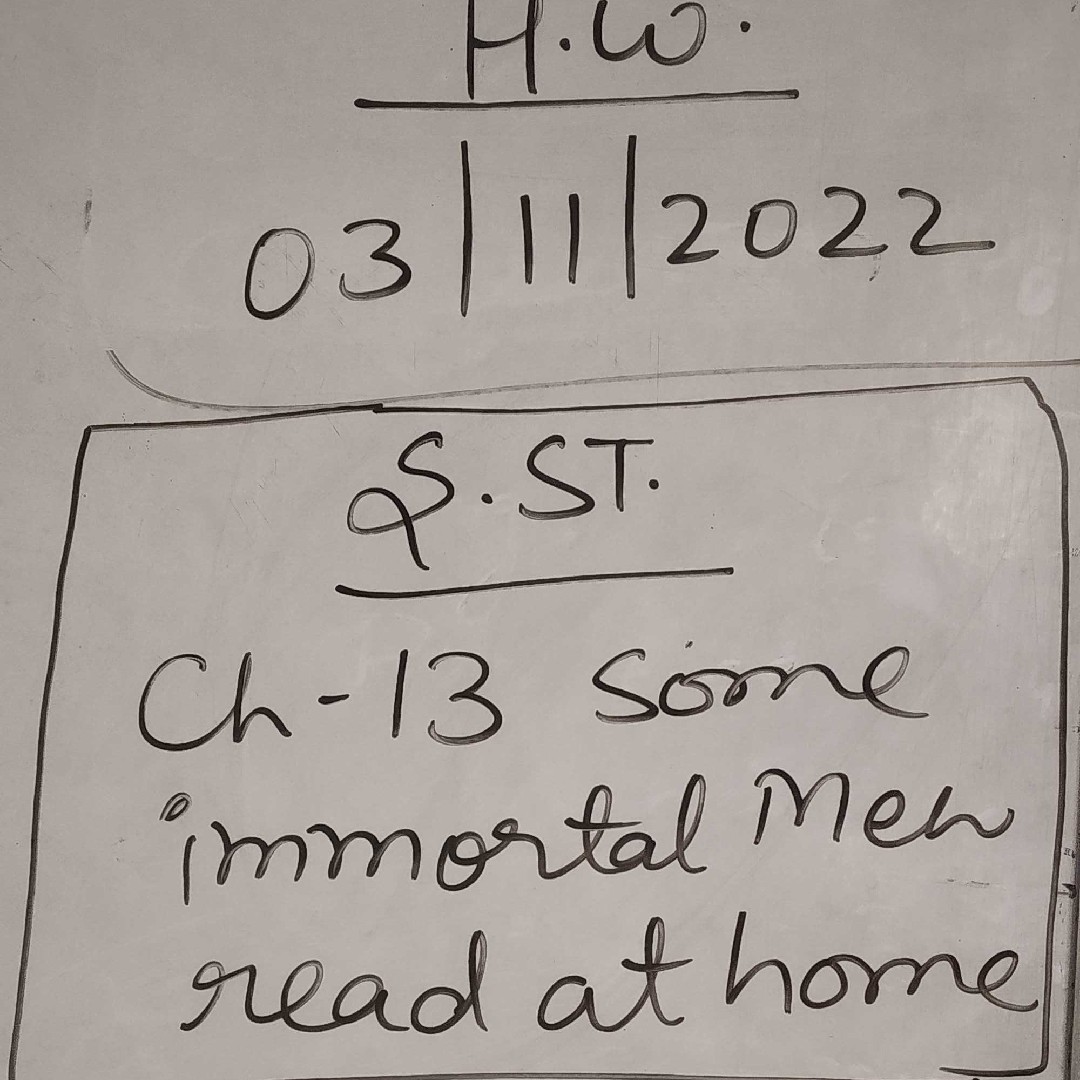 H.W.
03/11/2022
S.ST.
Ch-13 Some
immortal Men
read at home